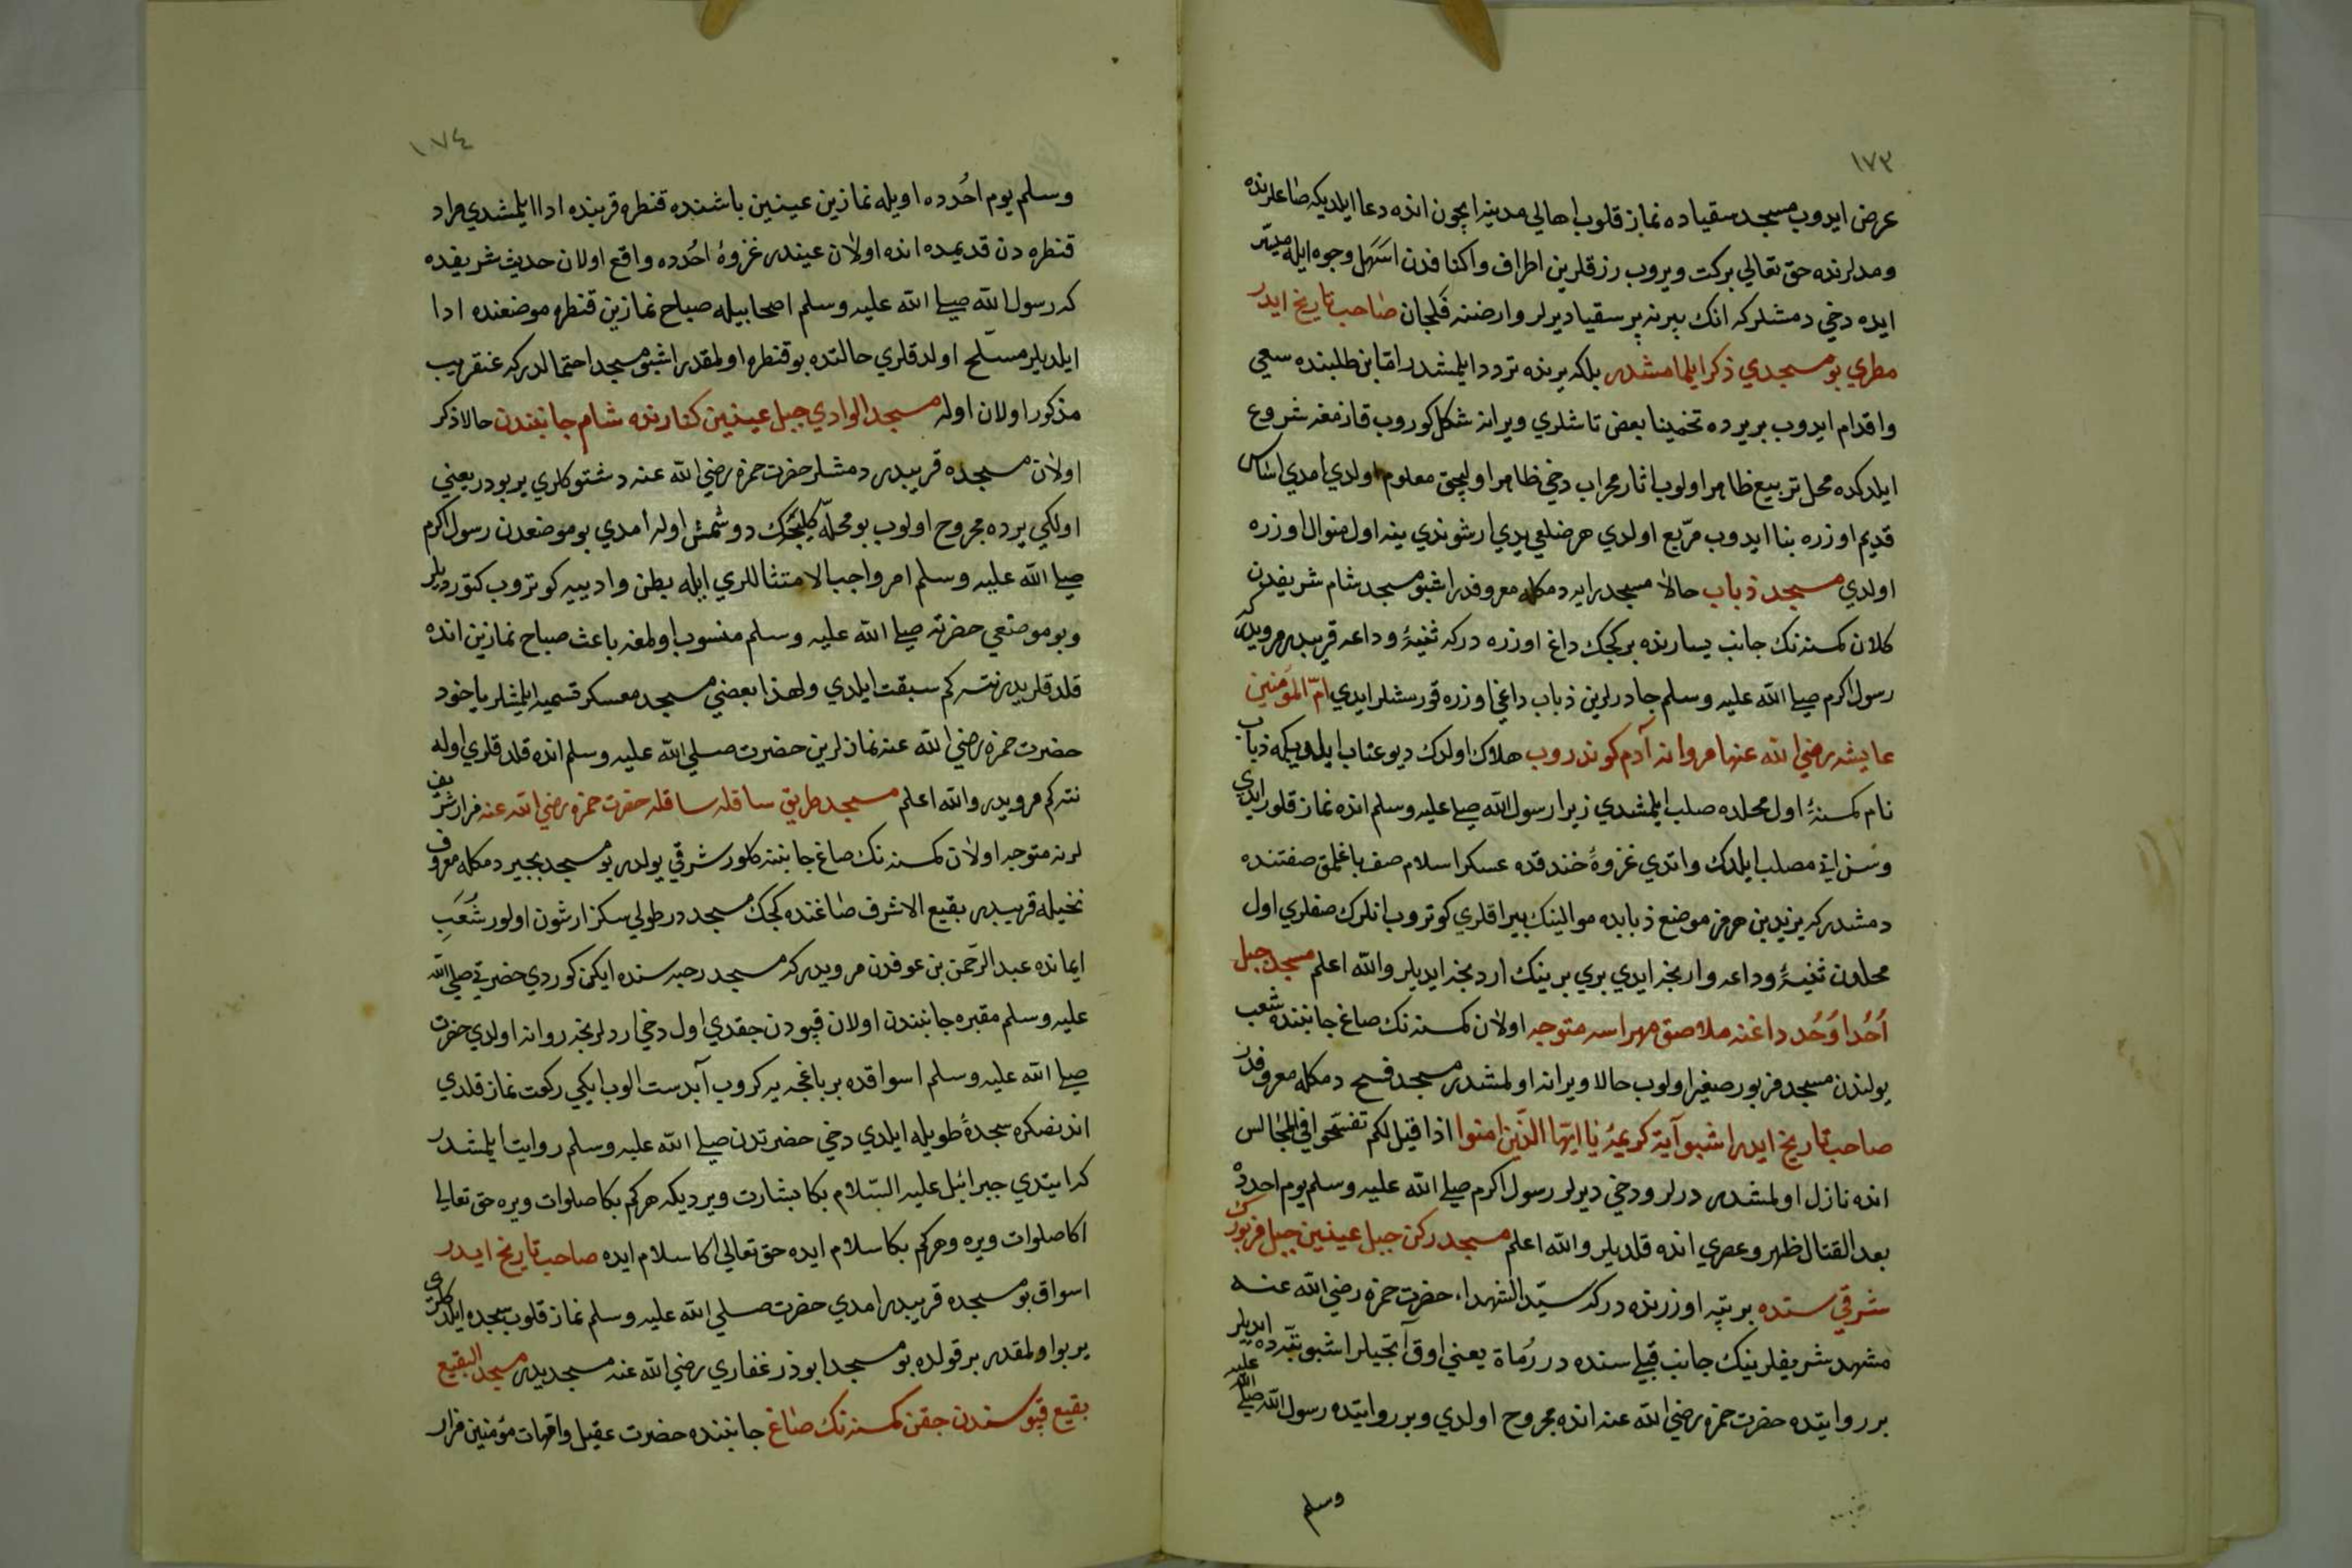 ١٧٣
عرض ايدوب مسجد سقياده نماز قلوب اهالي مدينه ايچون انده دعا ايلديكه صاعلرنده
ومدلرنده حق تعالي بركت ويروب رزقلرين اطراف واكنافدن اسهل وجوه ايله ميسر
ايده دخي دمشلركه انك بيرنه بير سقيا ديرلر وارضنه فلجان صاحب تاريخ ايدر
مطري بو مسجدي ذكر ايلمامشدر بلكه يرنده تردد ايلمشدر امّا بن طلبنده سعي
واقدام ايدوب بر يرده تخمينا بعض تاشلري ويرانه شكل كوروب قازمغه شروع
ايلدكده محل تربيع ظاهر اولوب اثار محراب دخي ظاهر اوليجق معلوم اولدي امدي اساس
قديم اوزره بنا ايدوب مربّع اولدي هر ضلعي يدي ارشوندي ينه اول منوال اوزره
اولدي مسجد ذباب حالا مسجد رايه دمكله معروفدر اشبو مسجد شام شريفدن
كلان كمسنه نك جانب يسارنده بر كجك داغ اوزره دركه ثنيۀ وداعه قريبدر مرويدر كه
رسول اكرم صلى الله عليه وسلم چادرلرين ذباب داغي اوزره قورمشلر ايدي امّ المؤمنين
عايشه رضي الله عنها مروانه آدم كوندروب هلاك اولدك ديو عتاب ايلديكه ذباب
نام كمسنۀ اول محلده صلب ايلمشدي زيرا رسول الله صلى عليه وسلم انده نماز قلور ايدي
وسن اني مصلب ايلدك واتدي غزوۀ خندقده عسكر اسلام صف باغلمق صفتنده
دمشدر كه يزيد بن هرمز موضع ذبابده موالينك بيراقلري كوتروب انلرك صفلري اول
محلدن ثنيۀ وداعه وارنجه ايدي بري برينك اردنجه ايديلر والله اعلم مسجد جبل
اُحُد اُحُد داغنه ملاصق مهراسه متوجه اولان كمسنه نك صاغ جانبنده شعب
يولندن مسجد مزبور صغير اولوب حالا ويرانه اولمشدر مسجد فسح دمكله معروفدر
صاحب تاريخ ايدر اشبو آيۀ كريمۀ يا ايها الّذين امنوا اذا قيل لكم تفسّحوا في المجالس
انده نازل اولمشدر درلر ودخي ديرلر رسول اكرم صلى الله عليه وسلم يوم احدده
بعد القتال ظهر وعصري انده قلديلر والله اعلم مسجد ركن جبل عينين جبل مزبورك
شرقي ستده بر تپه اوزرنده دركه سيّد الشهداء حضرت حمزه رضي الله عنه
مشهد شريفلرينك جانب قبلي سنده در رُماة يعني اوق آتجيلر اشبو تپّه ده ايديلر
بر روايتده حضرت حمزه رضي الله عنه انده مجروح اولدي وبر روايتده رسول الله صلى الله عليه
وسلم
١٧٤
وسلم يوم اُحُدده اويله نمازين عينين باشنده قنطره قربنده ادا ايلمشدي مراد
قنطره دن قديمده انده اولان عيندر غزوۀ اُحُدده واقع اولان حديث شريفده
كه رسول الله صلى الله عليه وسلم اصحابيله صباح نمازين قنطره موضعنده ادا
ايلديلر مسلّح اولدقلري حالتده بو قنطره اولمقدر اشبو مسجد احتمالدركه عنقريب
مذكور اولان اوله مسجد الوادي جبل عينين كنارنده شام جانبندن حالا ذكر
اولان مسجده قريبدر دمشلر حضرت حمزه رضي الله عنه دشتوكلري ير بودر يعني
اولكي يرده مجروح اولوب بو محلّه كليجك دوشمش اوله امدي بو موضعدن رسول اكرم
صلى الله عليه وسلم امر واجب الامتثاللري ايله بطن واديه كوتروب كتورديلر
وبو موضعي حضرته صلى الله عليه وسلم منسوب اولمغه باعث صباح نمازين انده
قلدقلريدر نته كم سبقت ايلدي ولهذا بعضي مسجد معسكر تسميه ايلمشلر يا خود
حضرت حمزه رضي الله عنه نمازلرين حضرت صلي الله عليه وسلم انده قلدقلري اوله
نته كم مرويدر والله اعلم مسجد طريق سافله سافله حضرت حمزه رضي الله عنه مزار شريف
لرنه متوجه اولان كمسنه نك صاغ جانبنه كلور شرقي يولدر بو مسجد بجير دمكله معروف
نخيله قريبدر بقيع الاشرف صاغنده كجك مسجددر طولي سكز ارشون اولور شُعَبِ
ايمانده عبد الرّحمن بن عوفدن مرويدر كه مسجد رحبه سنده ايكن كوردي حضرتي صلى الله
عليه وسلم مقبره جانبندن اولان قپودن چقدي اول دخي اردلرنجه روانه اولدي حضرت
صلى الله عليه وسلم اسواقده بر باغچه يه كروب آبدست الوب ايكي ركعت نماز قلدي
اندنصكره سجدۀ طويله ايلدي دخي حضرتدن صلى الله عليه وسلم روايت ايلمشدر
كه ايتدي جبرائيل عليه السّلام بكا بشارت ويرديكه هركم بكا صلوات ويره حق تعالى
اكا صلوات ويره وهركم بكا سلام ايده حق تعالي اكا سلام ايده صاحب تاريخ ايدر
اسواق بو مسجده قريبدر امدي حضرت صلي الله عليه وسلم نماز قلوب سجده ايلدكلري
ير بو اولمقدر بر قولده بو مسجد ابوذر غفاري رضي الله عنه مسجديدر مسجد البقيع
بقيع قپوسندن چقن كمسنه نك صاغ جانبنده حضرت عقيل وامّهات مؤمنين مزار